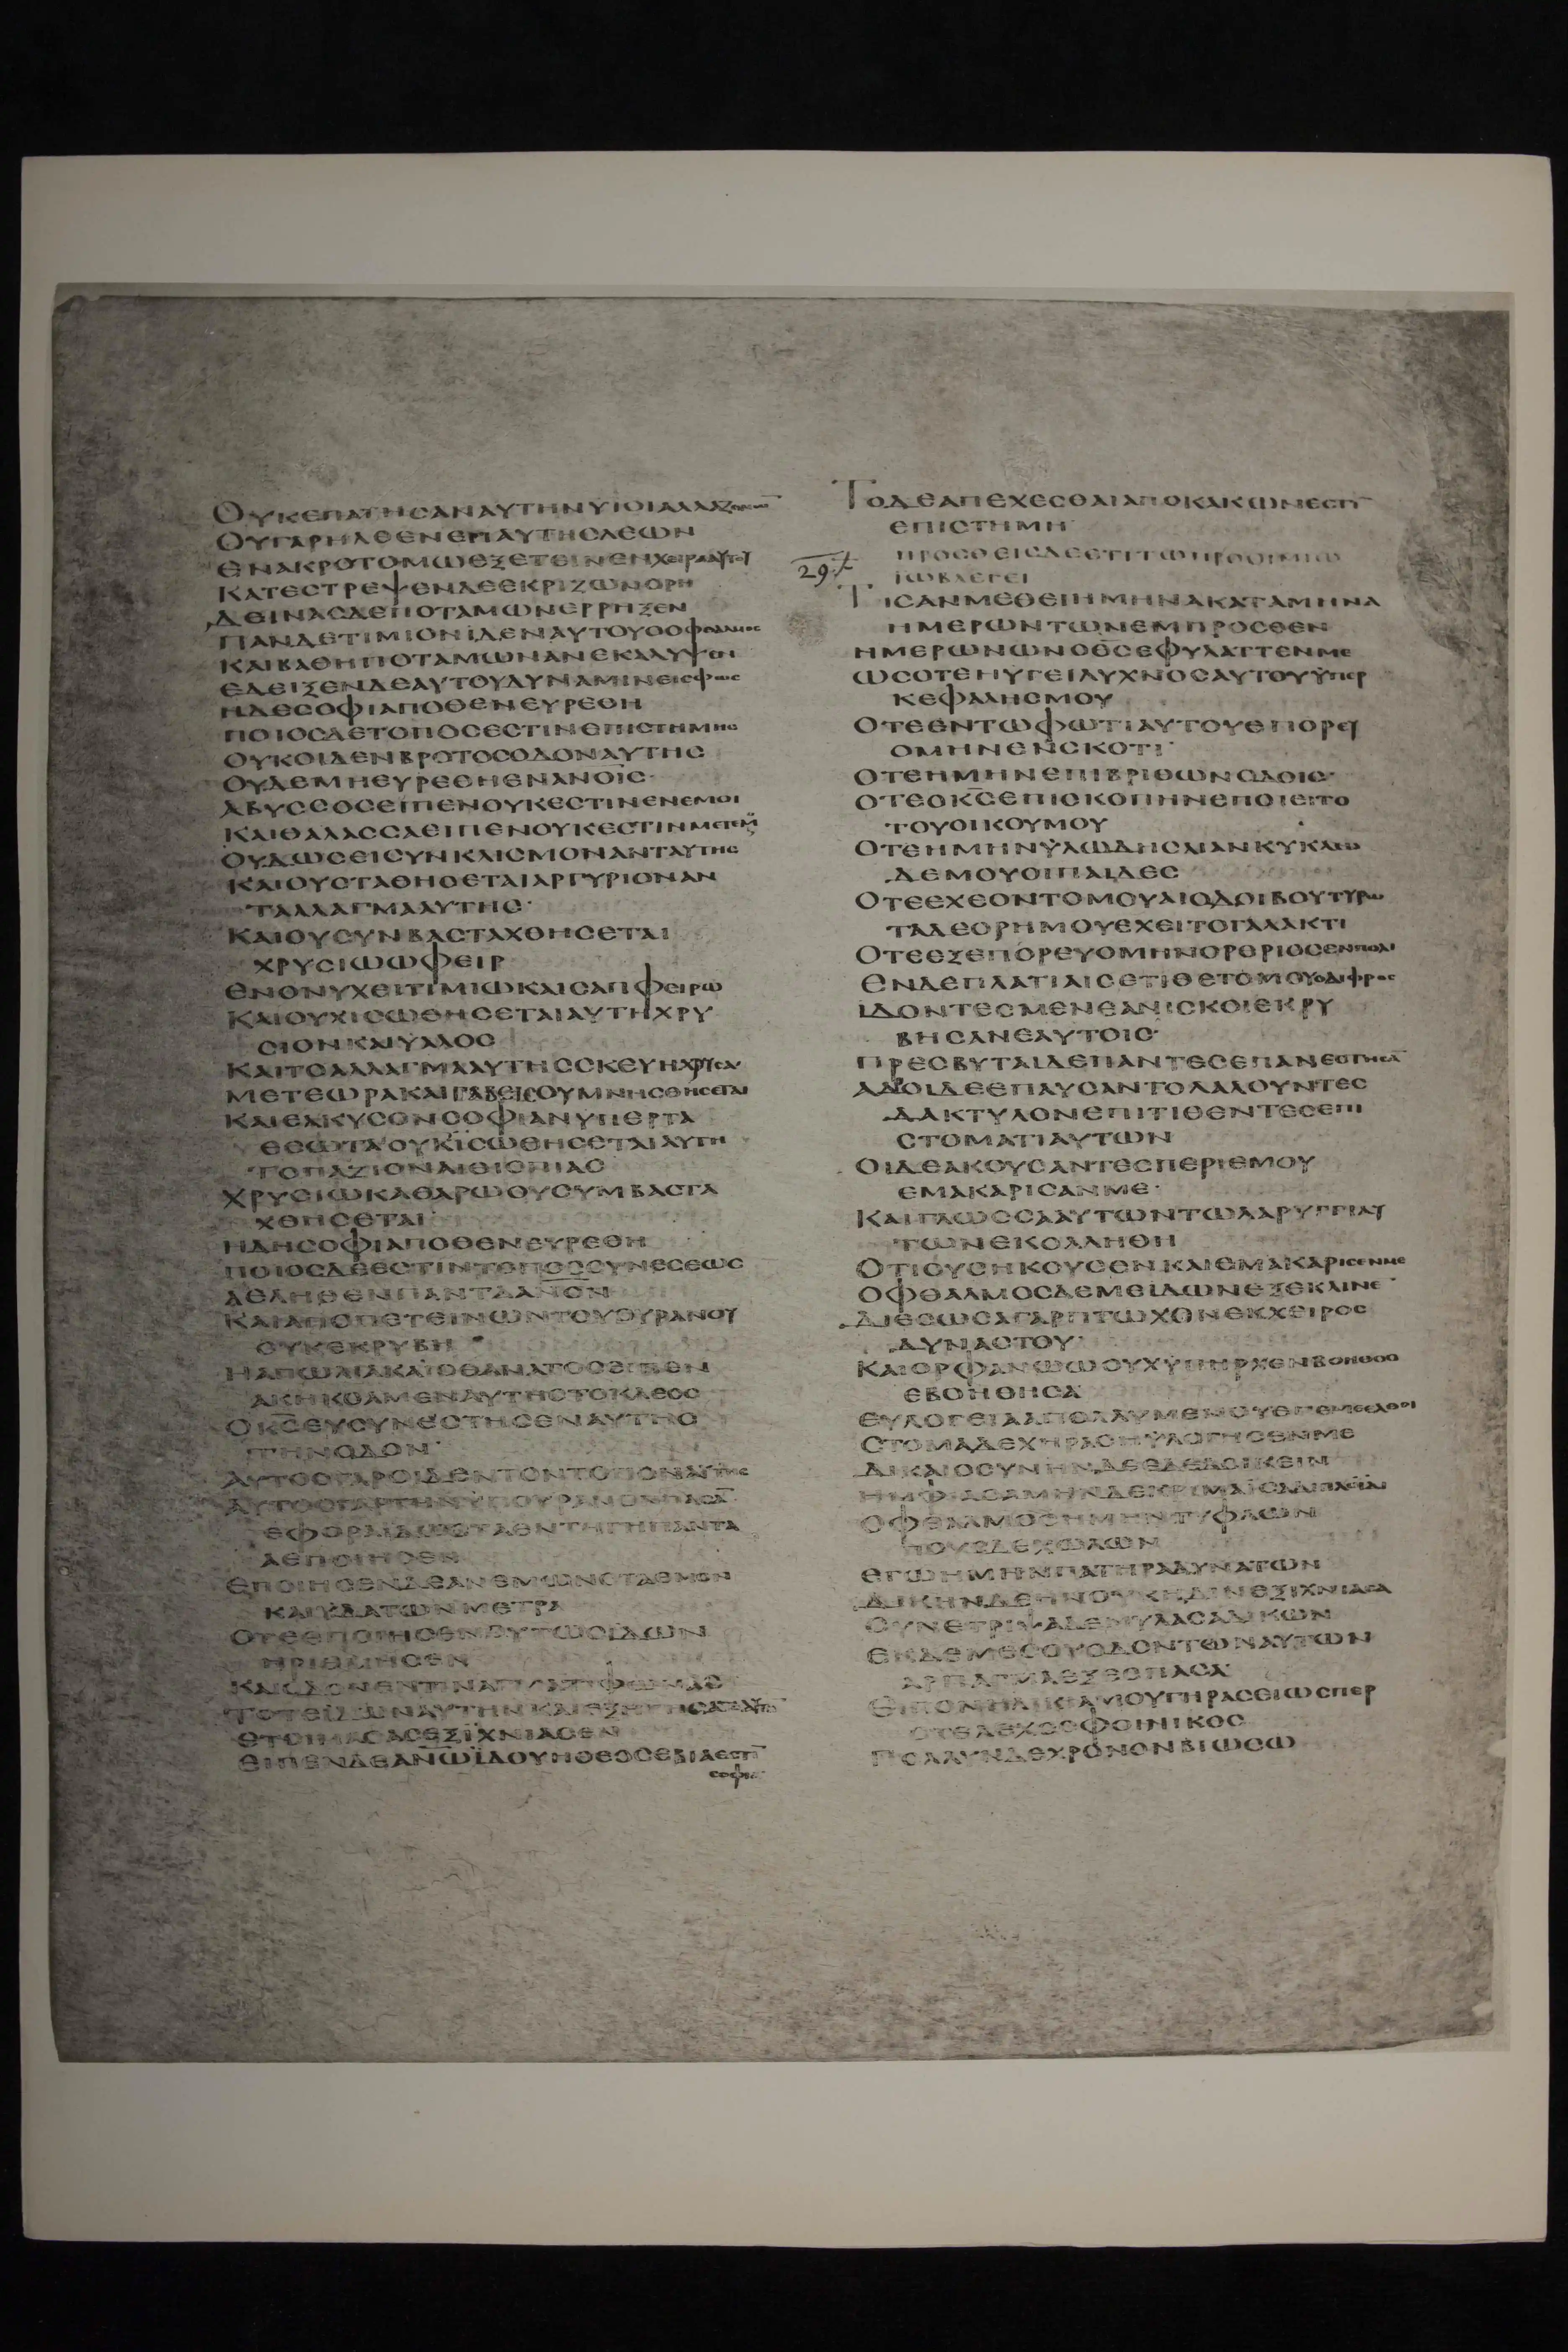 ΟΥΚΕΠΑΤΗCΑΝΑΥΤΗΝΥΙΟΙΑΛΑΖΟΝΩΝ
ΟΥΠΑΡΗΛΘΕΝΕΠΑΥΤΗCΛΕΩΝ
ΕΝΑΚΡΟΤΟΜΩΕΞΕΤΕΙΝΕΝΧΕΙΡΑΑΥΤΟΥ
ΚΑΤΕCΤΡΕΨΕΝΔΕΕΚΡΙΖΩΝΟΡΗ
ΔΕΙΝΑCΔΕΠΟΤΑΜΩΝΕΡΡΗΞΕΝ
ΠΑΝΔΕΤΙΜΙΟΝΪΔΕΝΑΥΤΟΥΟΟΦΘΑΛΜΟC
ΚΑΙΒΑΘΗΠΟΤΑΜΩΝΑΝΕΚΑΛΥΨΕΝ
ΕΔΕΙΞΕΝΔΕΑΥΤΟΥΔΥΝΑΜΙΝΕΙCΦΩC
ΗΔΕCΟΦΙΑΠΟΘΕΝΕΥΡΕΘΗ
ΠΟΙΟCΔΕΤΟΠΟCΕCΤΙΝΕΠΙCΤΗΜΗC
ΟΥΚΟΙΔΕΝΒΡΟΤΟCΟΔΟΝΑΥΤΗC
ΟΥΔΕΜΗΕΥΡΕΘΗΕΝΑΝΟΙC·
ΑΒΥCCΟCΕΙΠΕΝΟΥΚΕCΤΙΝΕΝΕΜΟΙ
ΚΑΙΘΑΛΑCCΑΕΙΠΕΝΟΥΚΕCΤΙΝΜΕΤΕΜΟΥ
ΟΥΔΩCΕΙCΥΝΚΛΙCΜΟΝΑΝΤΑΥΤΗC
ΚΑΙΟΥCΤΑΘΗCΕΤΑΙΑΡΓΥΡΙΟΝΑΝ
ΤΑΛΛΑΓΜΑΑΥΤΗC·
ΚΑΙΟΥCΥΝΒΑCΤΑΧΘΗCΕΤΑΙ
ΧΡΥCΙΩΩΦΕΙΡ
ΕΝΟΝΥΧΕΙΤΙΜΙΩΚΑΙCΑΠΦΕΙΡΩ
ΚΑΙΟΥΧΙCΩΘΗCΕΤΑΙΑΥΤΗΧΡΥ
CΙΟΝΚΑΙΥΑΛΟC
ΚΑΙΤΟΑΛΛΑΓΜΑΑΥΤΗCCΚΕΥΗΧΡΥCΑ·
ΜΕΤΕΩΡΑΚΑΙΓΑΒΕΙCΟΥΜΝΗCΘΗCΕΤΑΙ
ΚΑΙΕΛΚΥCΟΝCΟΦΙΑΝΥΠΕΡΤΑ
ΤΟΠΑΖΙΟΝΑΙΘΙΟΠΙΑC
ΧΡΥCΙΩΚΑΘΑΡΩΟΥCΥΜΒΑCΤΑ
ΧΘΗCΕΤΑΙ·
ΗΔΗCΟΦΙΑΠΟΘΕΝΕΥΡΕΘΗ
ΠΟΙΟCΔΕΕCΤΙΝΤΟΠΟCCΥΝΕCΕΩC
ΛΕΛΗΘΕΝΠΑΝΤΑΑΝΟΝ
ΚΑΙΑΠΟΠΕΤΕΙΝΩΝΤΟΥΟΥΡΑΝΟΥ
ΟΥΚΕΚΡΥΒΗ
ΗΑΠΩΛΙΑΚΑΙΟΘΑΝΑΤΟCΕΙΠΕΝ
ΑΚΗΚΟΑΜΕΝΑΥΤΗCΤΟΚΛΕΟC
ΟΚCΕΥCΥΝΕCΤΗCΕΝΑΥΤΗC
ΤΗΝΟΔΟΝ·
ΑΥΤΟCΓΑΡΟΙΔΕΝΤΟΝΤΟΠΟΝΑΥΤΗC
ΑΥΤΟCΓΑΡΤΗΝΥΠΟΥΡΑΝΟΝΠΑCΑΝ
ΕΦΟΡΑΙΔΩCΤΑΕΝΤΗΓΗΠΑΝΤΑ
ΑΕΠΟΙΗCΕΝ
ΕΠΟΙΗCΕΝΔΕΑΝΕΜΩΝCΤΑΘΜΟΝ
ΚΑΙΥΔΑΤΩΝΜΕΤΡΑ
ΟΤΕΕΠΟΙΗCΕΝΟΥΤΩCΙΔΩΝ
ΗΡΙΘΜΗCΕΝ
ΕΤΟΙΜΑCΑCΕΞΙΧΝΙΑCΕΝ
ΕΙΠΕΝΔΕΑΝΩΪΔΟΥΗΘΕΟCΕΒΙΑΕCΤΙ
CΟΦΙΑ·
ΤΟΔΕΑΠΕΧΕCΘΑΙΑΠΟΚΑΚΩΝΕCΤΙ
ΕΠΙCΤΗΜΗ·
ΠΡΟCΘΕΙCΔΕΕΤΙΤΩΠΡΟΟΙΜΙΩ
ΙΩΒΛΕΓΕΙ
29.
ΤΙCΑΝΜΕΘΕΙΗΜΗΝΑΚΑΤΑΜΗΝΑ
ΗΜΕΡΩΝΤΩΝΕΜΠΡΟCΘΕΝ
ΗΜΕΡΩΝΩΝΟΘCΕΦΥΛΑΤΤΕΝΜΕ
ΩCΟΤΕΗΥΓΕΙΛΥΧΝΟCΑΥΤΟΥΫΠΕΡ
ΚΕΦΑΛΗCΜΟΥ
ΟΤΕΕΝΤΩΦΩΤΙΑΥΤΟΥΕΠΟΡΕΥ
ΟΜΗΝΕΝCΚΟΤΙ·
ΟΤΕΗΜΗΝΕΠΙΒΡΙΘΩΝΟΔΟΙC·
ΟΤΕΟΚCΕΠΙCΚΟΠΗΝΕΠΟΙΕΙΤΟ
ΤΟΥΟΙΚΟΥΜΟΥ
ΟΤΕΗΜΗΝΥΛΩΔΗCΛΙΑΝΚΥΚΛΩ
ΔΕΜΟΥΟΙΠΑΙΔΕC
ΟΤΕΕΧΕΟΝΤΟΜΟΥΑΙΟΔΟΙΒΟΥΤΥΡΩ
ΤΑΔΕΟΡΗΜΟΥΕΧΕΙΤΟΓΑΛΑΚΤΙ
ΟΤΕΕΞΕΠΟΡΕΥΟΜΗΝΟΡΘΡΙΟCΕΝΠΟΛΙ
ΕΝΔΕΠΛΑΤΙΑΙCΕΤΙΘΕΤΟΜΟΥΟΔΙΦΡΟC
ΙΔΟΝΤΕCΜΕΝΕΑΝΙCΚΟΙΕΚΡΥ
ΒΗCΑΝΕΑΥΤΟΙC·
ΠΡΕCΒΥΤΑΙΔΕΠΑΝΤΕCΕΠΑΝΕCΤΗCΑΝ
ΑΔΡΟΙΔΕΕΠΑΥCΑΝΤΟΛΑΛΟΥΝΤΕC
ΔΑΚΤΥΛΟΝΕΠΙΤΙΘΕΝΤΕCΕΠΙ
CΤΟΜΑΤΙΑΥΤΩΝ
ΟΙΔΕΑΚΟΥCΑΝΤΕCΠΕΡΙΕΜΟΥ
ΕΜΑΚΑΡΙCΑΝΜΕ·
ΚΑΙΓΛΩCCΑΑΥΤΩΝΤΩΛΑΡΥΓΓΙΑΥ
ΤΩΝΕΚΟΛΛΗΘΗ
ΟΤΙΟΥCΗΚΟΥCΕΝΚΑΙΕΜΑΚΑΡΙCΕΝΜΕ
ΟΦΘΑΛΜΟCΔΕΜΕΙΔΩΝΕΞΕΚΛΙΝΕ·
ΔΙΕCΩCΑΓΑΡΠΤΩΧΟΝΕΚΧΕΙΡΟC
ΔΥΝΑCΤΟΥ·
ΚΑΙΟΡΦΑΝΩΩΟΥΧΫΠΗΡΧΕΝΒΟΗΘΟC
ΕΒΟΗΘΗCΑ
ΕΥΛΟΓΕΙΑΑΠΟΛΛΥΜΕΝΟΥΕΠΕΜΕΕΛΘΟΙ
CΤΟΜΑΔΕΧΗΡΑCΗΥΛΟΓΗCΕΝΜΕ
ΔΙΚΑΙΟCΥΝΗΝΔΕΕΔΕΔΟΙΚΕΙΝ
ΟΦΘΑΛΜΟCΗΜΗΝΤΥΦΛΩΝ
ΠΟΥCΔΕΧΩΛΩΝ
ΕΓΩΗΜΗΝΠΑΤΗΡΑΔΥΝΑΤΩΝ
ΔΙΚΗΝΔΕΗΝΟΥΚΗΔΙΝΕΞΙΧΝΙΑCΑ
CΥΝΕΤΡΙΨΑΔΕΜΥΛΑCΑΔΙΚΩΝ
ΕΚΔΕΜΕCΟΥΟΔΟΝΤΩΝΑΥΤΩΝ
ΑΡΠΑΓΜΑΕΞΕCΠΑCΑ·
ΕΙΠΟΝΗΛΙΚΙΑΜΟΥΓΗΡΑCΕΙΩCΠΕΡ
CΤΕΛΕΧΟCΦΟΙΝΙΚΟC
ΠΟΛΛΥΝΔΕΧΡΟΝΟΝΒΙΩCΩ